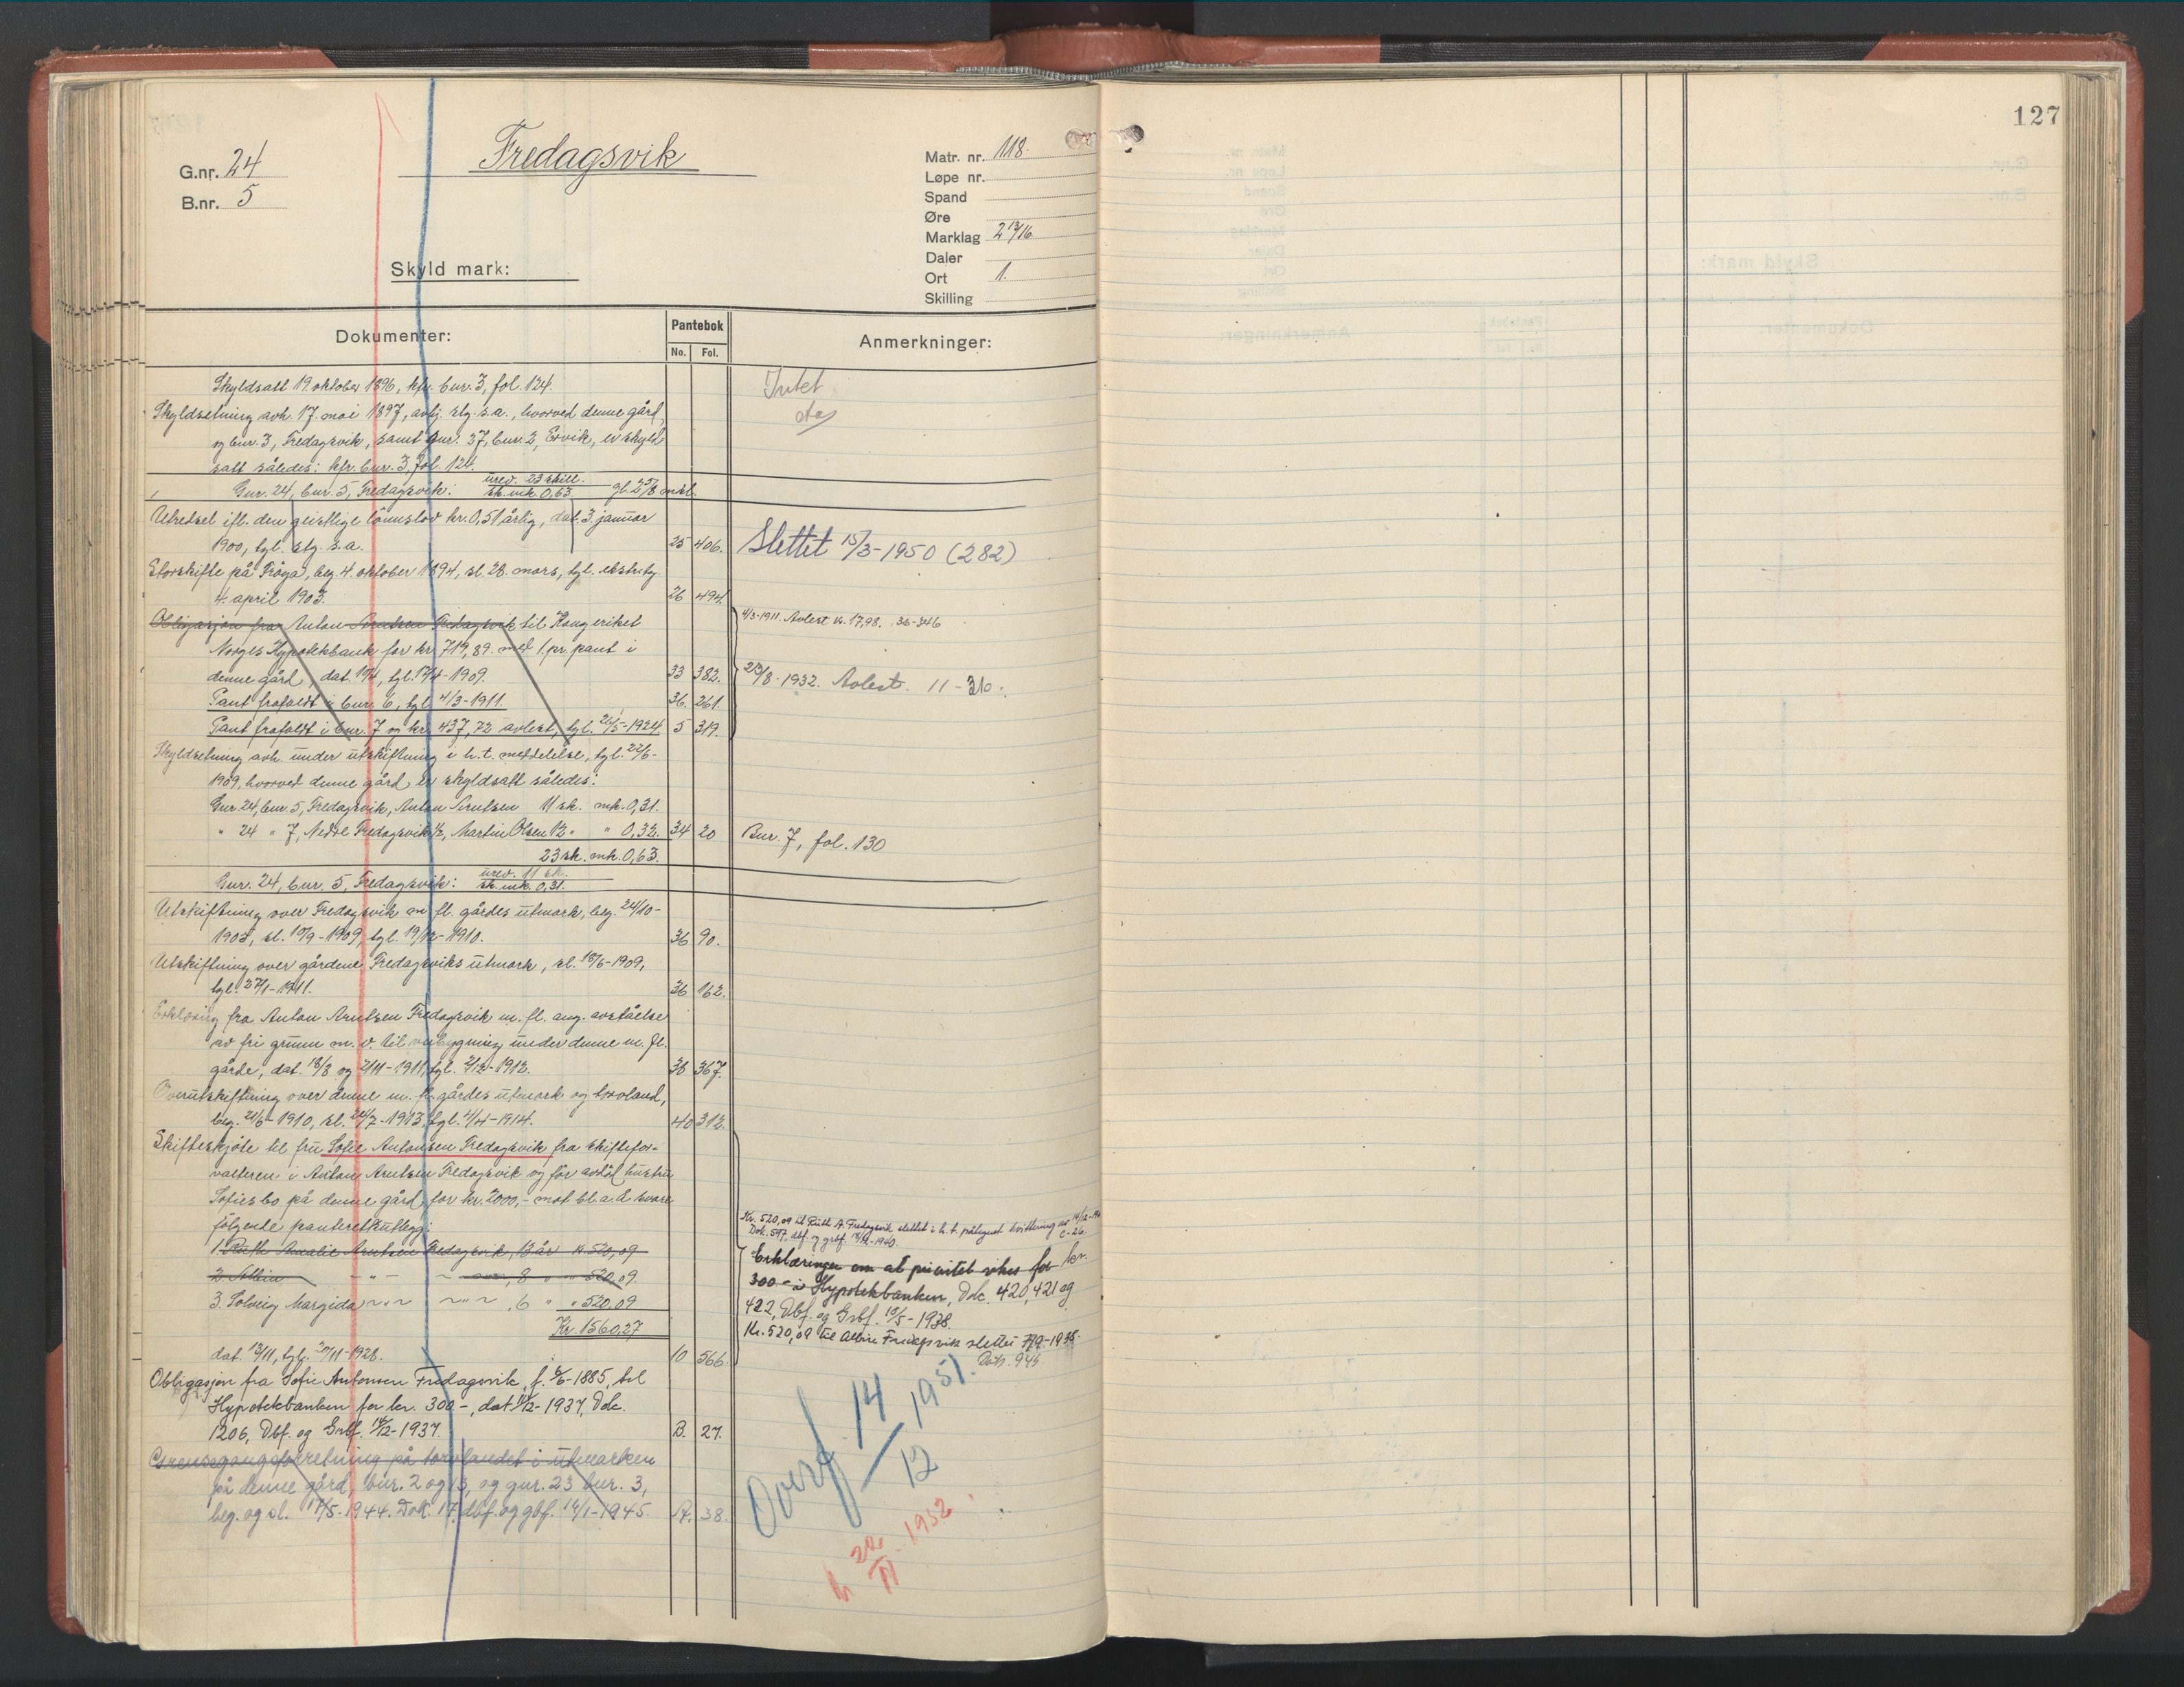 127
G.nr. 24
B.nr. 5
Fredagsvik
Skyld mark:
Matr. nr. 118.
Løpe nr.
Spand
Øre
Marklag 2 13/16
Daler
Ort 1.
Skilling
Dokumenter:
Pantebok
No. Fol.
Anmerkninger:
Skyldsatt 19. oktober 1896, kfr. bnr. 3, fol. 124.
Intet
Skyldsetning avh. 17. mai 1897, avhj. stg. s.a., hvorved denne gård,
og bnr. 3, Fredagsvik, samt gnr. 27, bnr. 2, Ervik, er skyld
satt således: kfr. bnr. 3, fol. 124.
Gnr. 24, bnr. 5, Fredagsvik: urev. 23 skill. sk. mk. 0,63. gl. 2 5/8 mkl.
Utredsel ifl. den geistlige lönnslov kr. 0,51 årlig, dat. 3. januar
1900, tgl. stg. s.a. 25 406.
Slettet 15/3-1950 (282)
Storskifte på Fröya, beg. 4. oktober 1894, sl. 28. mars, tgl. ekstratg.
4. april 1903. 26 494.
Obligasjon fra Anton Arntsen Fredagsvik til Kongeriket
Norges Hypotekbank for kr. 719,89. med 1. pr. pant i
denne gård, dat. 19/4, tgl. 19/4-1909. 33 382.
4/3-1911. Avlest kr. 17,98. 36-346
23/8-1932. Avlest. 11-310.
Pant frafaldt i bnr. 6, tgl. 4/3-1911. 36. 261.
Pant frafaldt i bnr. 7 og kr. 437,72 avlest, tgl. 26/5-1924. 5 319.
Skyldsetning avh. under utskiftning i h. t. meddelelse, tgl. 22/6-
1909, hvorved denne gård er skyldsatt således:
Gnr. 24, bnr. 5, Fredagsvik, Anton Arntsen 11 sk. mk. 0,31.
" 24 " 7, Nedre Fredagsvik 1/2, Martin Olsen 12 " " 0,32. 34 20
Bnr. 7, fol. 130
23 sk. mk. 0,63.
Gnr. 24, bnr. 5, Fredagsvik: urev. 11 sk. sk. mk. 0,31.
Utskiftning over Fredagsvik m. fl. gårdes utmark, beg. 24/10-
1903, sl. 10/9-1909, tgl. 19/12-1910. 36 90.
Utskiftning over gårdene Fredagsviks utmark, sl. 18/6-1909,
tgl. 27/1-1911. 36 162.
Erklæring fra Anton Arntsen Fredagsvik m. fl. ang. avståelse
av fri grunn m. v. til veibygning under denne m. fl.
gårde, dat. 18/8 og 2/11-1911, tgl. 2/12-1912. 38 367.
Overutskiftning over denne m. fl. gårdes utmark og torvland,
beg. 21/6-1910, sl. 24/7-1913, tgl. 4/4-1914. 40 312.
Skifteskjöte til fru Sofie Antonsen Fredagsvik fra skiftefor-
valteren i Anton Arntsen Fredagsvik og før avdöd hustru
Sofies bo på denne gård for kr. 2000,- mot bl. a. å svare
følgende panteretsutlegg:
1. Ruth Amalie Arntsen Fredagsvik, 13 år kr. 520,09
2. Albin " " , 8 " " 520,09
3. Solveig Margida " " , 6 " " 520,09
Kr. 1560,27
dat. 13/11, tgl. 20/11-1928. 10 566.
Kr. 520,09 til Ruth A. Fredagsvik slettet i h. t. påtegnet kvittering av 14/12-1940
Dok. 597, dbf. og grbf. 18/12-1940. C-26.
Erklæringer om at prioritet vikes for kr.
300- i Hypotekbanken, Dok. 420, 421 og
422, Dbf. og Grbf. 18/5-1938.
Kr. 520,09 til Albin Fredagsvik slettet 7/9-1938.
Dok. 945
Obligasjon fra Sofie Antonsen Fredagsvik, f. 5/6-1885, til
Hypotekbanken for kr. 300-, dat. 11/12-1937, Dok.
1206, Dbf. og Grbf. 14/12-1937. B. 27.
Grensegangsforretning på torvlandet i utmarken
på denne gård, bnr. 2 og 3, og gnr. 23 bnr. 3,
beg. og sl. 17/5-1944. Dok. 17, dbf. og gbf. 12/1-1945. A. 38.
Overf. 14/12 1951.
22/11-1952